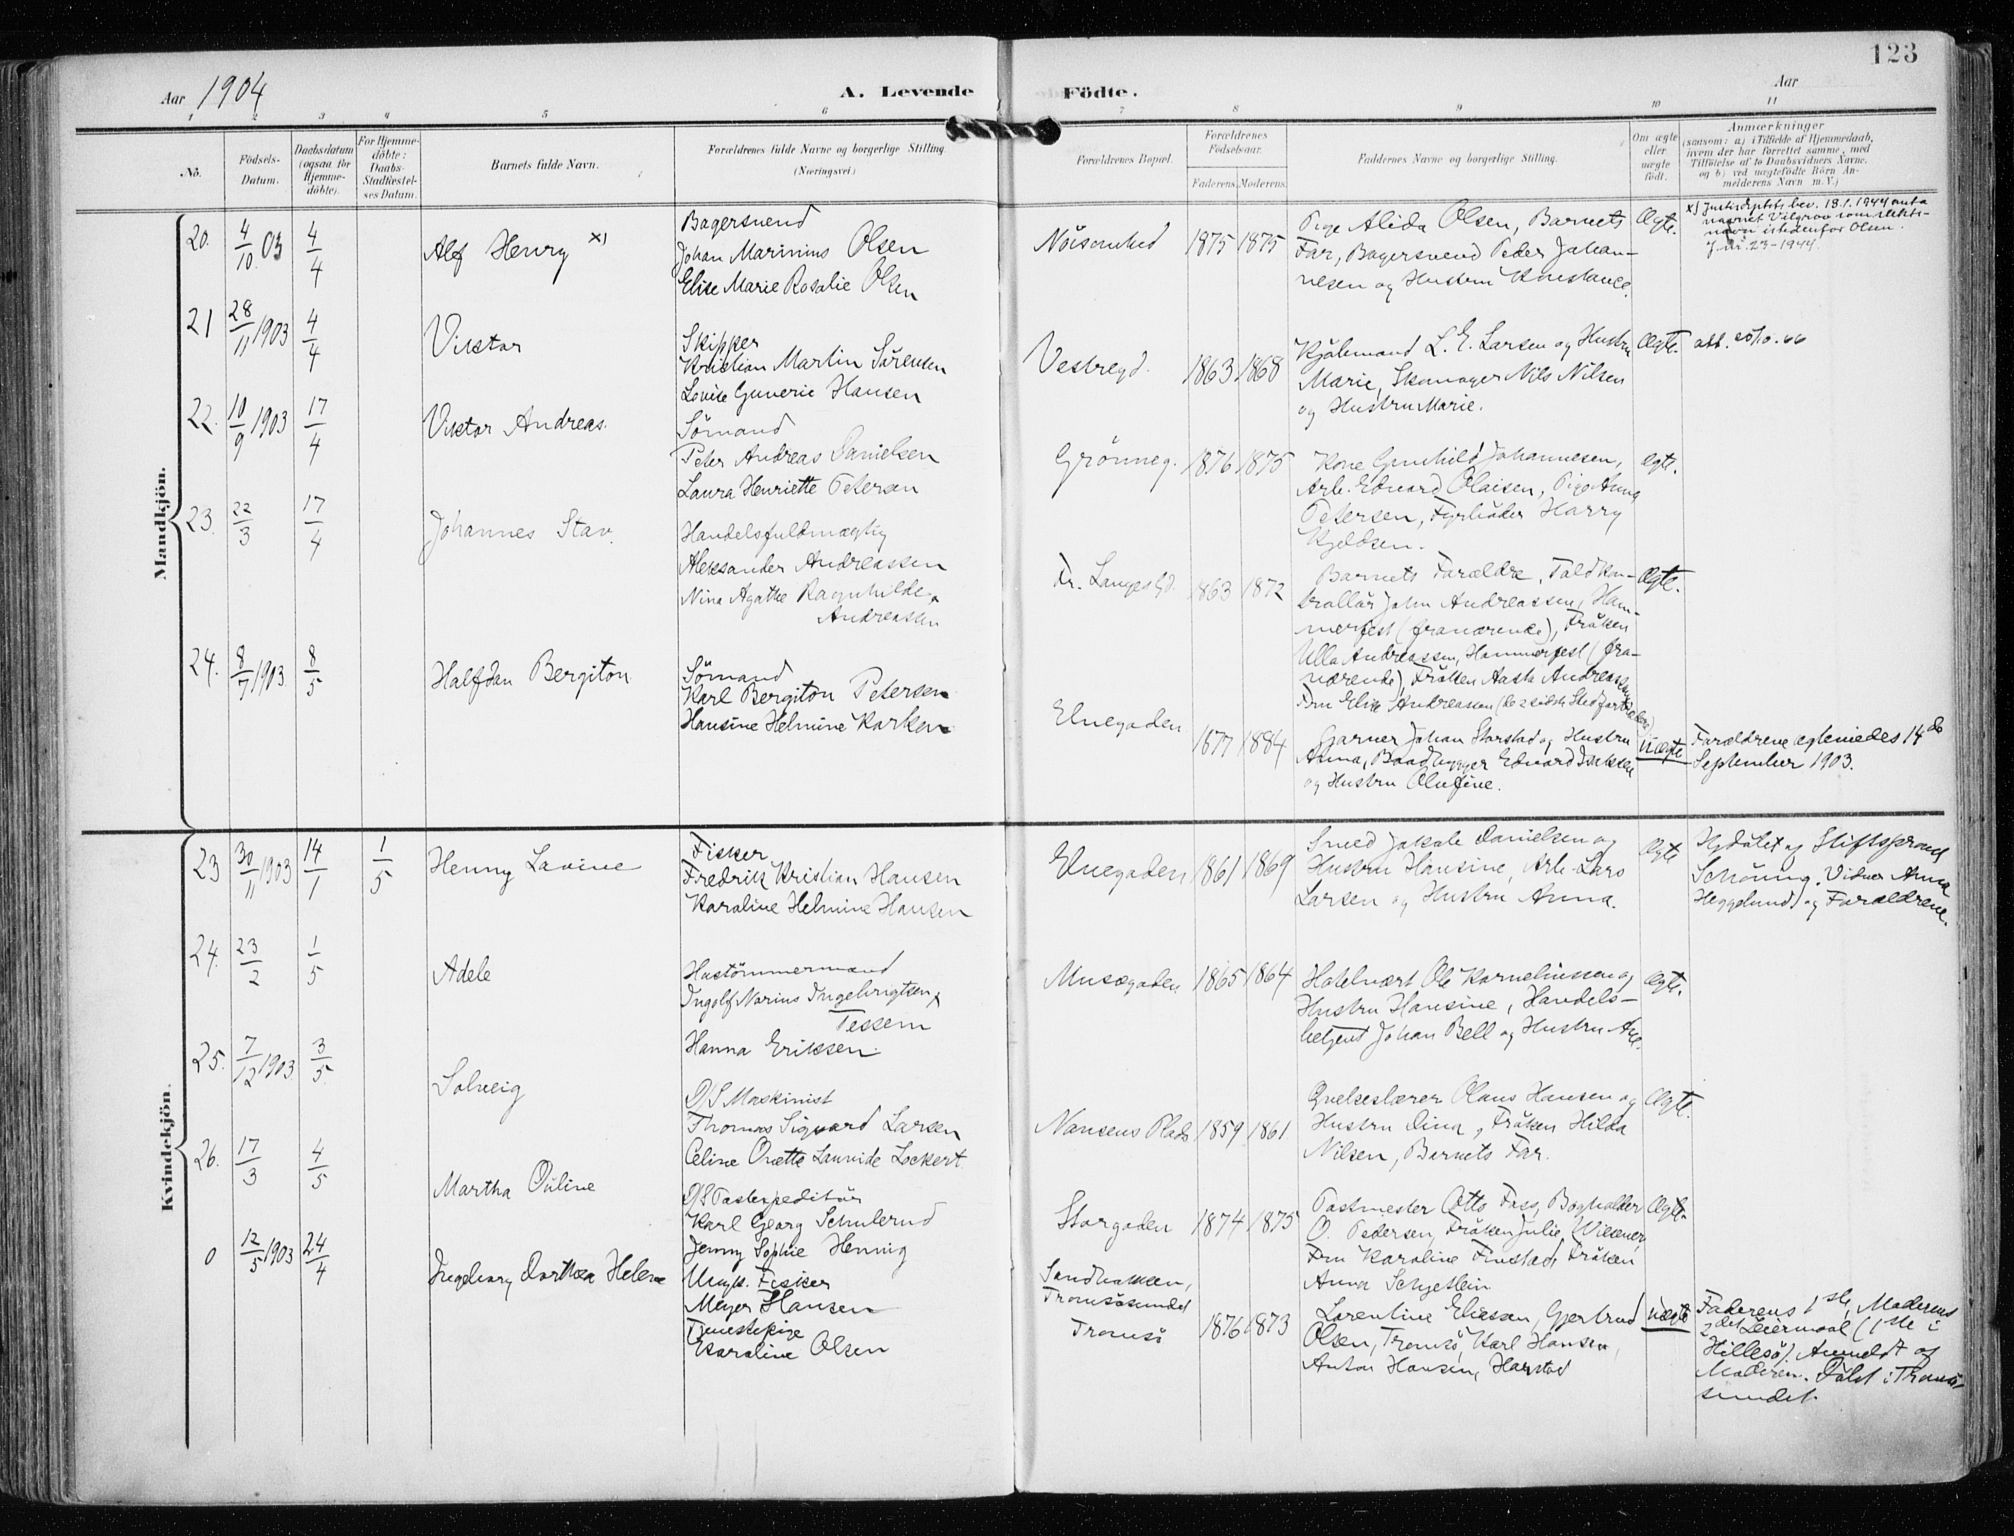 123
Aar 1904
A. Levende Födte.
Aar
1 2 3 4 5 6 7 8 9 10 11
No.
Födsels-
Datum.
Daabsdatum
(ogsaa for
Hjemme-
döbte).
For Hjemme-
döbte:
Daabs-
Stadfæstel-
ses Datum.
Barnets fulde Navn.
Forældrenes fulde Navne og borgerlige Stilling.
(Næringsvei)
Forældrenes Bopæl.
Forældrenes
Födselsaar.
Faderens. Moderens.
Faddernes Navne og borgerlige Stilling.
Om ægte
eller
uægte
födt.
Anmærkninger
(saasom: a) i Tilfælde af Hjemmedaab,
hvem der har forrettet samme, med
Tilföielse af to Daabsvidners Navne.
og b) ved uægtefödte Börn An-
melderens Navn m. V.)
Mandkjön.
20. 4/10 03 4/4 Alf Henry x)
Bagersvend
Johan Marinius Olsen
Elise Marie Rosalie Olsen
Nöisomhed 1875 1875
Pige Alida Olsen, Barnets
Far, Bagersvend Peder Johan-
nesen og Hustru Konstance.
Ægte.
x) Justisdeptets bev. 18.1.1944 anta
navnet Vilgrav som slekts-
navn istedenfor Olsen.
J nr. 23-1944.
21 28/11 1903 4/4 Viktor
Skipper
Kristian Martin Sörensen
Lovise Gunerie Hansen
Vestregd. 1863 1868
Kjölemand L. E. Larsen og Hustru
Marie, Skomager Nils Nilsen
og Hustru Marie.
Ægte. att.
22. 10/9 1903 17/4 Viktor Andreas.
Sömand
Peter Andreas Danielsen
Laura Henriette Petersen
Grönneg. 1876 1875
Kone Gunhild Johannesen,
Arb. Edvard Olaisen, Pige Anna
Petersen, Fyrböder Harry
Kjeldsen.
ægte.
23. 22/3 17/4 Johannes Stav.
Handelsfuldmægtig
Aleksander Andreassen
Nina Agathe Ragnhilde
Andreassen
Fr. Langes Gd. 1863 1872
Barnets Forældre, Toldkon-
trollör John Andreassen, Ham-
merfest (fraværende), Fröken
Ulla Andreassen, Hammerfest (fra-
værende), Fröken Aasta Andreassen
Fru Elise Andreassen
Ægte.
24. 8/7 1903 8/5 Halfdan Bergiton
Sömand
Karl Bergiton Petersen
Hansine Helmine Karlsen
Elvegaden 1877 1884
Garver Johan Storstad og Hustru
Anna, Baadbygger Edvard Isaksen
og Hustru Olufine.
uægte
Forældrene ægteviedes 14de
September 1903.
Kvindekjön.
23 30/11 1903 14/1 1/5 Henny Lovine
Fisker
Fredrik Kristian Hansen
Karoline Helmine Hansen
Elvegaden 1861 1869
Smed Jakob Danielsen og
Hustru Hansine, Arb. Lars
Larsen og Hustru Anna.
Ægte
Hjdöbt af Stiftsprovst
Schöning. Vidner Anna
Heggelund og Forældrene.
24. 23/2 1/5 Adele
Hustömmermand
Ingolf Norius Ingebrigtsen
Tessem
Hanna Eriksen.
Musægaden 1865 1864
Hotelvært Ole Korneliussen og
Hustru Hansine, Handels-
betjent Johan Bell og Hustru
ægte.
25. 7/12 1903 3/5 Solveig
D/S Maskinist
Thomas Sigvard Larsen
Celine Lockert
Nansens Plads 1859 1861
Övelseslærer Olaus Hansen og
Hustru Dina, Fröken Hilda
Nilsen, Barnets Far.
Ægte.
26. 17/3 4/5 Martha Ouline
D/S Postexpeditör
Karl Georg Schulerud
Jenny Sophie Hennig
Storgaden 1874 1875
Postmester Otto Foss, Bogholder
O. Pedersen, Fröken Julie
Fru Karoline Finstad, Fröken
Anna Schjetlein
Ægte.
0 12/5 1903 24/4 Ingeborg Dorthea Helene
Ungk. Fisker
Meyer Hansen
Tjenestepige
Karoline Olsen
Sandbakken,
Tromsösundet
Tromsö
1876 1873
Lorentine Eliesen, Gjertrud
Olsen, Tromsö, Karl Hansen,
Anton Hansen, Harstad
uægte
Faderens 1ste, Moderens
2det Leiermaal (1ste i
Hillesö). Anmeldt af
Moderen. Döbt i Tromsö-
sundet.